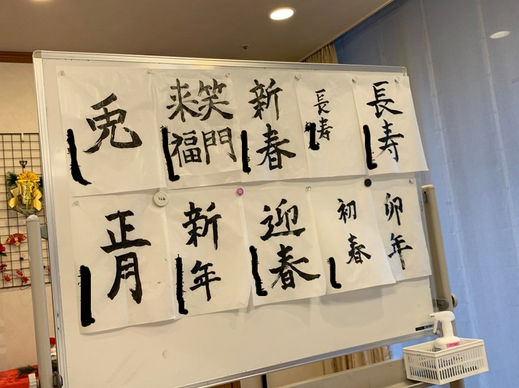 兎
笑門
来福
新春
長寿
長寿
正月
新年
迎春
初春
卯年